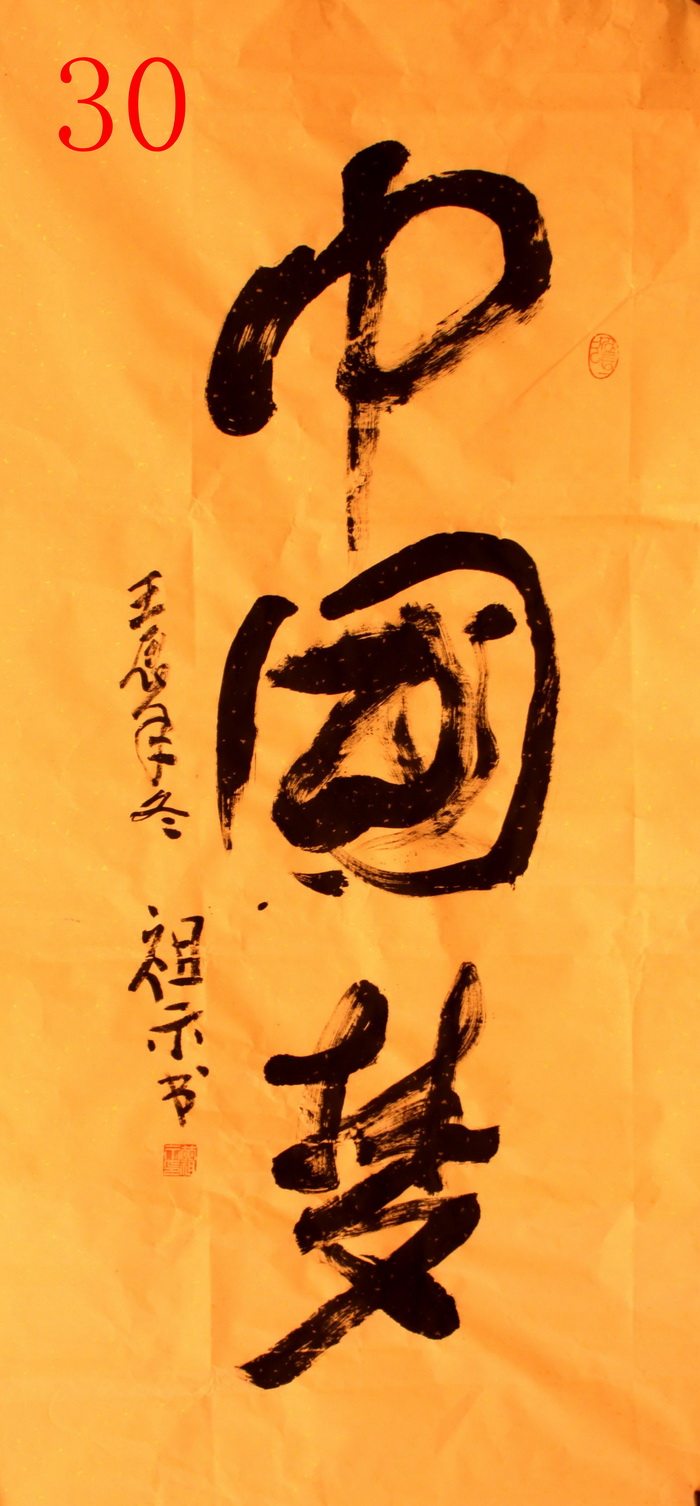 30
中国梦
壬辰年冬
祖示书